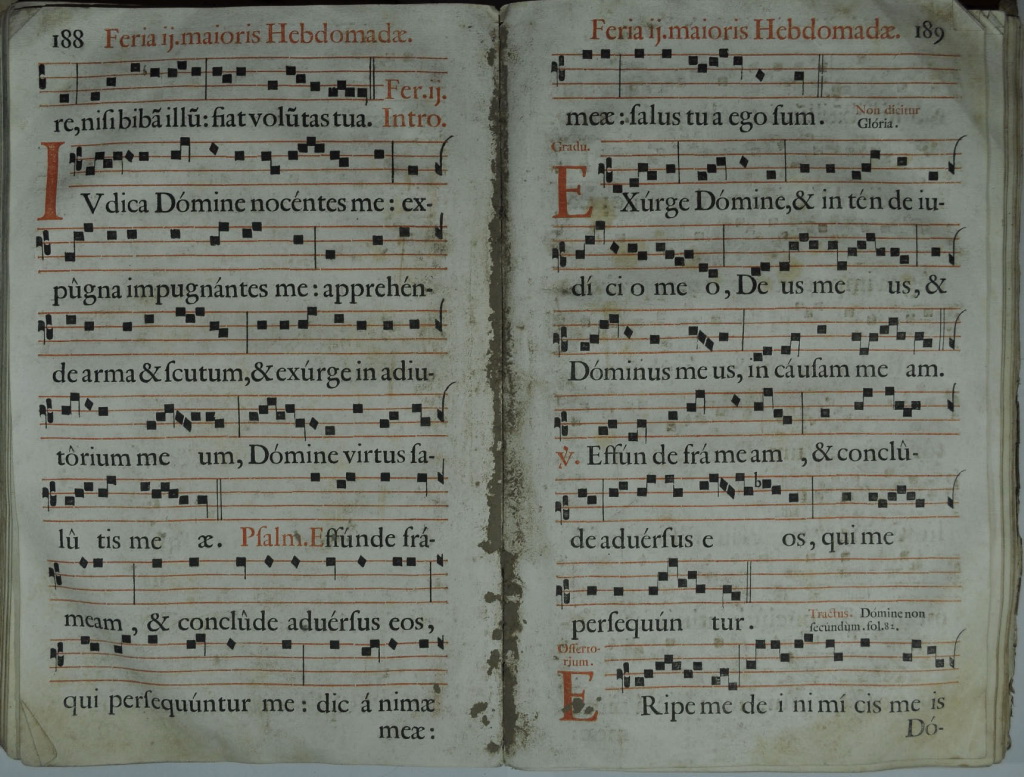 188 Feria ij. maioris Hebdomadæ.
re, niſi bibã illũ: fiat volũtas tua. Fer. ij. Intro.
IVdica Dómine nocéntes me: ex-
pûgna impugnántes me: apprehén-
de arma & ſcutum, & exúrge in adiu-
tôrium me um, Dómine virtus ſa-
lû tis me æ. Pſalm. Effúnde frá-
meam, & conclûde aduérſus eos,
qui perſequúntur me: dic á nimæ
meæ:
Feria ij. maioris Hebdomadæ. 189
meæ: ſalus tu a ego ſum. Non dicitur Glória.
Gradu.
EXúrge Dómine, & in tén de iu-
dí ci o me o, De us me us, &
Dóminus me us, in cáuſam me am.
℣. Effún de frá me am , & conclû-
de aduérſus e os, qui me
perſequún tur. Tractus. Dómine non
ſecúndum. fol. 82.
Offerto-
rium.
ERipe me de i ni mí cis me is
Dó-